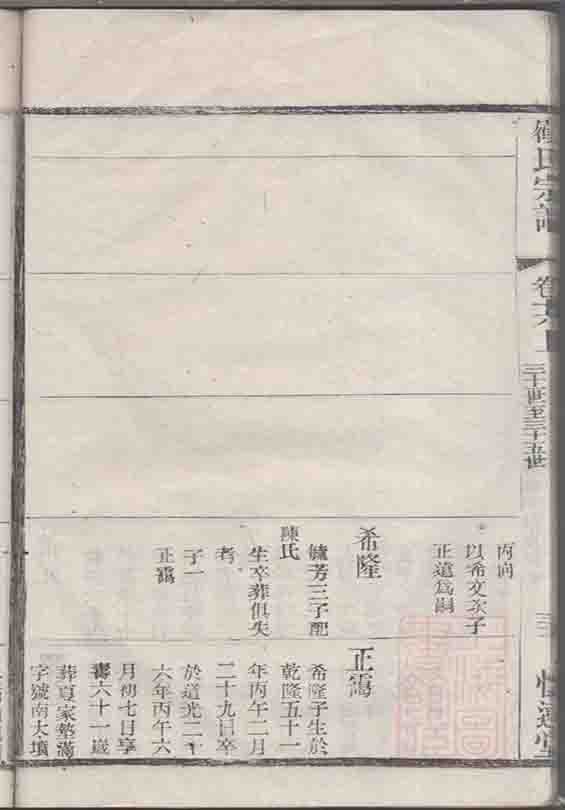 氏宗譜
卷六上
三十世至三十五世
丙向
以希文次子
正遠爲嗣
希隆
毓芳三子配
陳氏
生卒葬俱失
考
子一
正靄
正靄
希隆子生於
乾隆五十一
年丙午二月
二十九日卒
於道光二十
六年丙午六
月初七日享
壽六十一歲
葬夏家墊滿
字號南大塡